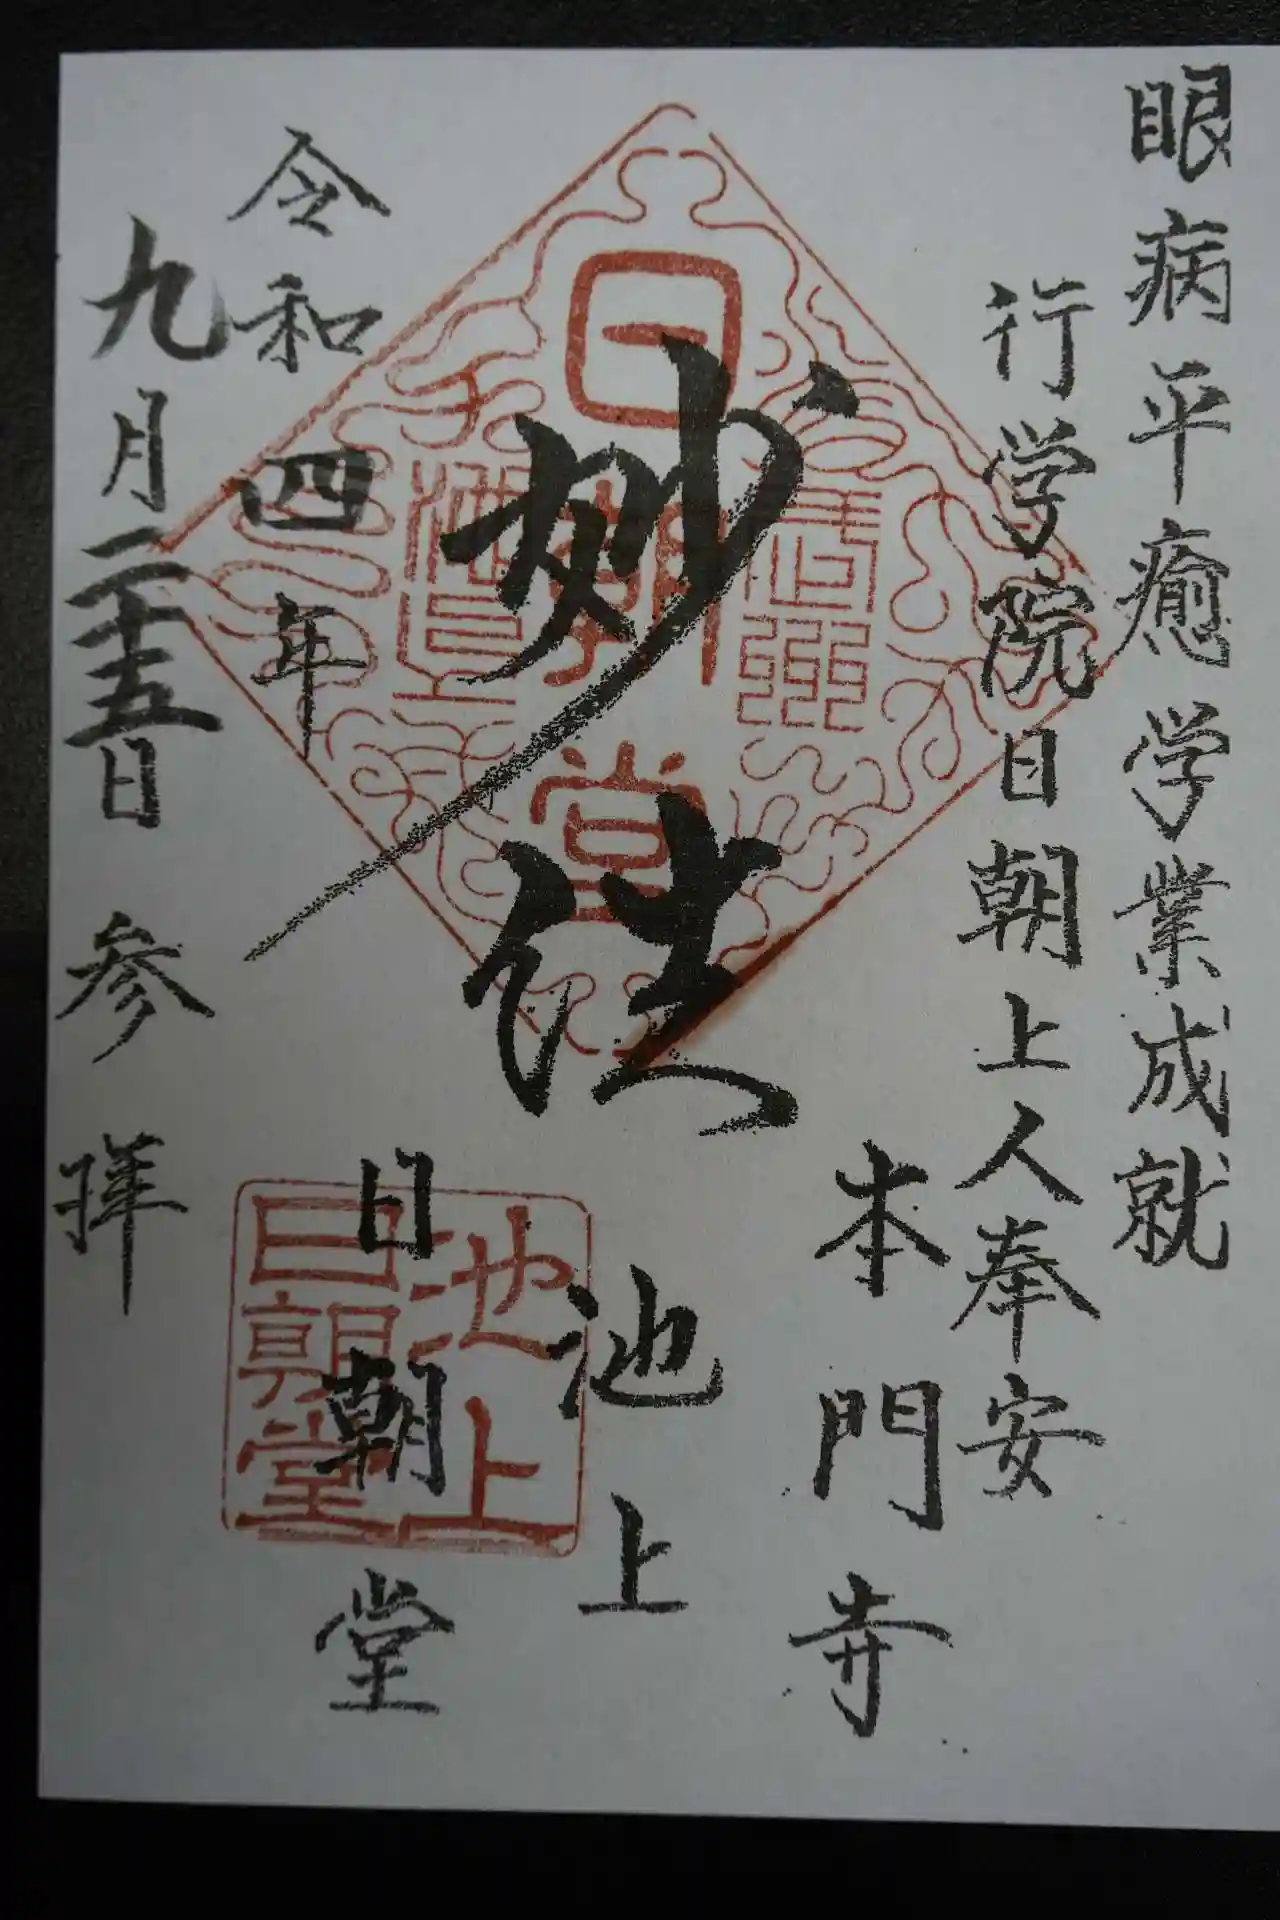 眼病平癒学業成就
行学院日朝上人奉安
本門寺
池上
妙法
日朝堂
日朝堂
池上
日朝堂
令和四年
九月二十五日参拝